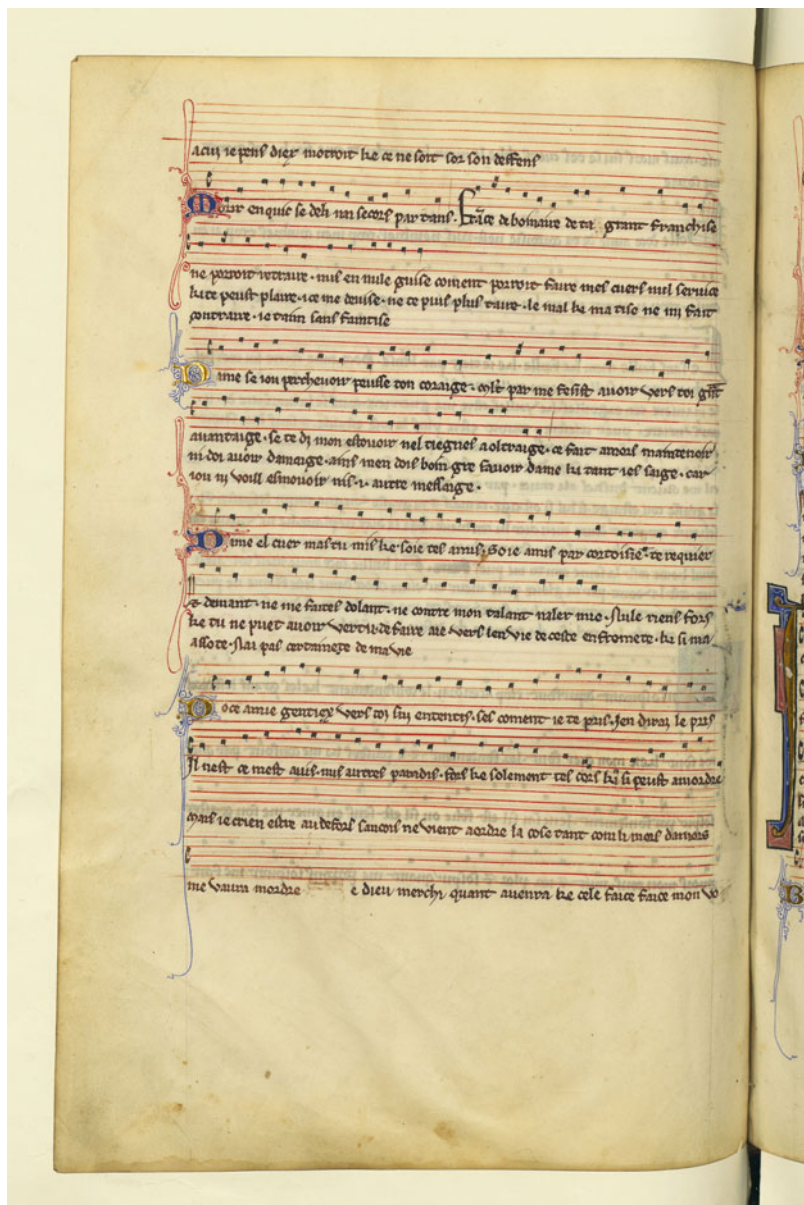 acui ie pens diex motroit ke ce ne soit sor son deffens
Mour en qui se deli nai secors par tans. France debonaire de ta grant franchise
ne porroit retraire. nus en nule guise coment porroit faire mes cuers nul service
ki te peust plaire. ice me devise. ne te puis plus taire. le mal ke ma tise ne mi fait
contraire. ie taim sans faintise
Dame se iou percevoir peusse ton coraige. par me fesist avoir vers toi
avantaige. se te di mon estovoir nel tiegnes a oltraige. ce fait amors maintenoir
ni doi avoir damaige. ains men dois boin gre savoir dame ki tant ies saige. car
iou ni voill esmovoir nis .i. autre messaige.
Dame el cuer mas tu mis ke soie tes amis. Soie amis par cortoisie. te requier
& demant. ne me faites dolant. ne contre mon talant naler mie. Nule riens fors
ke tu ne puet avoir vertu de faire aie vers lenvie de ceste enfromete. ki si ma
assote. Nai pas certainete de ma vie
Doce amie gentiex vers toi sui ententis. Ses coment ie te pris. Jen dirai le pris
Il nest ce mest avis. nus autres paradis. fors ke solement tes cors ki si peust amordre
Mais ie crien estre au defors sancois ne vient aordre la cose tant com li mors damors
me vaura mordre e dieu merchi quant avenra ke cele faice faice mon vo
B